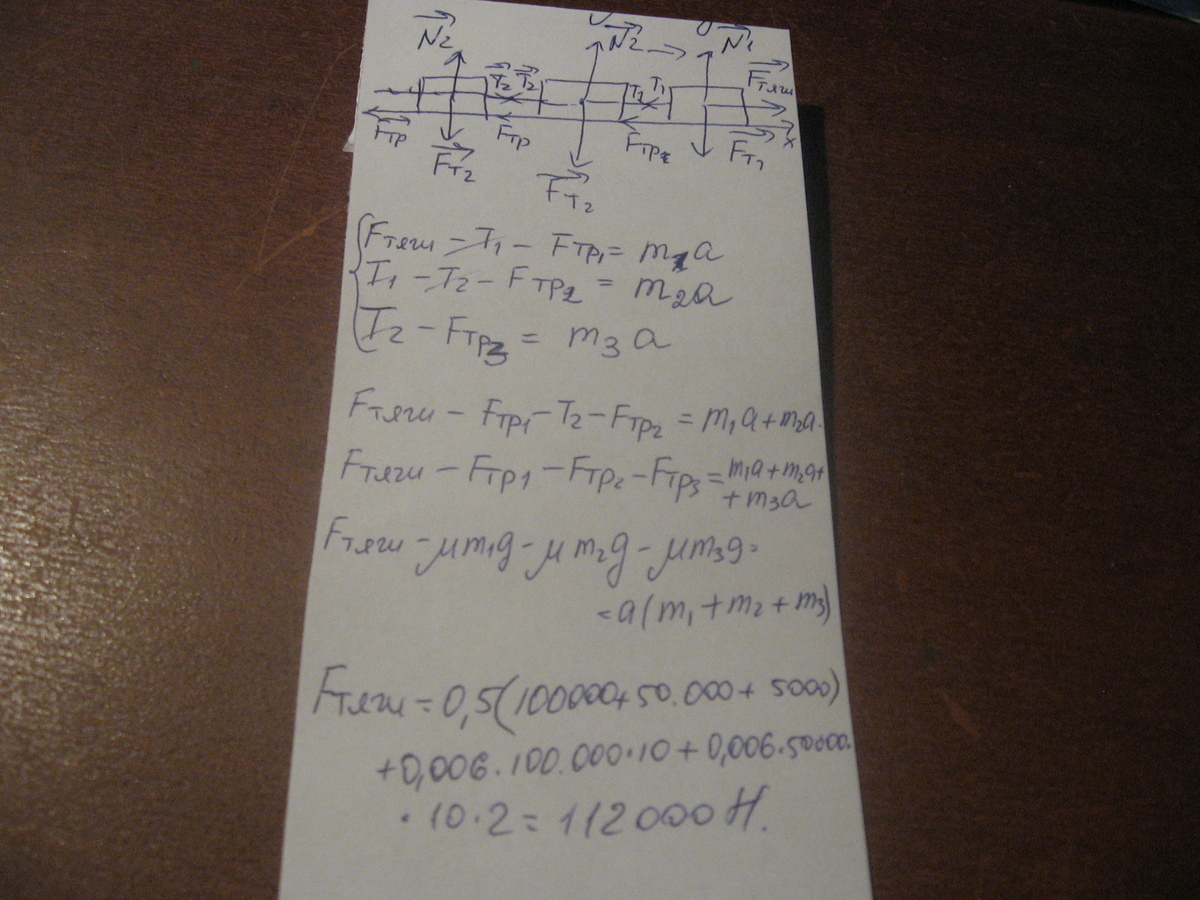 N2 N2 N1
T2 T2 T1 T1 Fтяги
Fтр Fтр Fтр2 x
Fт2 Fт2 Fт1
Fтяги - T1 - Fтр1 = m1a
T1 - T2 - Fтр2 = m2a
T2 - Fтр3 = m3a
Fтяги - Fтр1 - T2 - Fтр2 = m1a + m2a.
Fтяги - Fтр1 - Fтр2 - Fтр3 = m1a + m2a +
+ m3a
Fтяги - μm1g - μm2g - μm3g =
= a(m1 + m2 + m3)
Fтяги = 0,5(100000 + 50.000 + 5000)
+ 0,006 · 100.000 · 10 + 0,006 · 50000.
· 10 · 2 = 112000 Н.